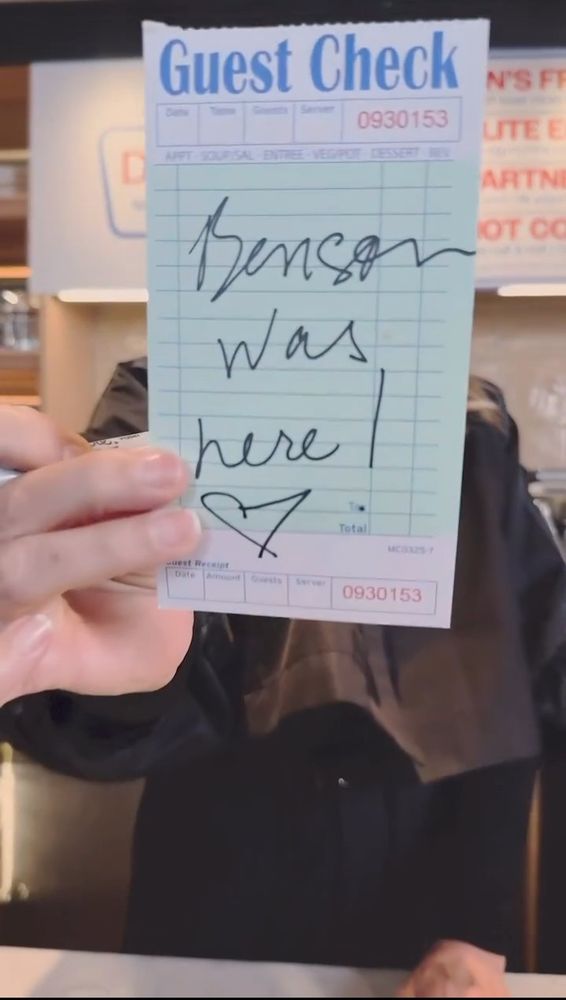 Guest Check
Date Table Guests Server 0930153
APPT - SOUP/SAL - ENTREE - VEG/POT - DESSERT - BEV
Benson
was
here!
Total
Guest Receipt
Date Amount Guests Server 0930153
N'S FR
UTE E
ARTNE
OT CO
D